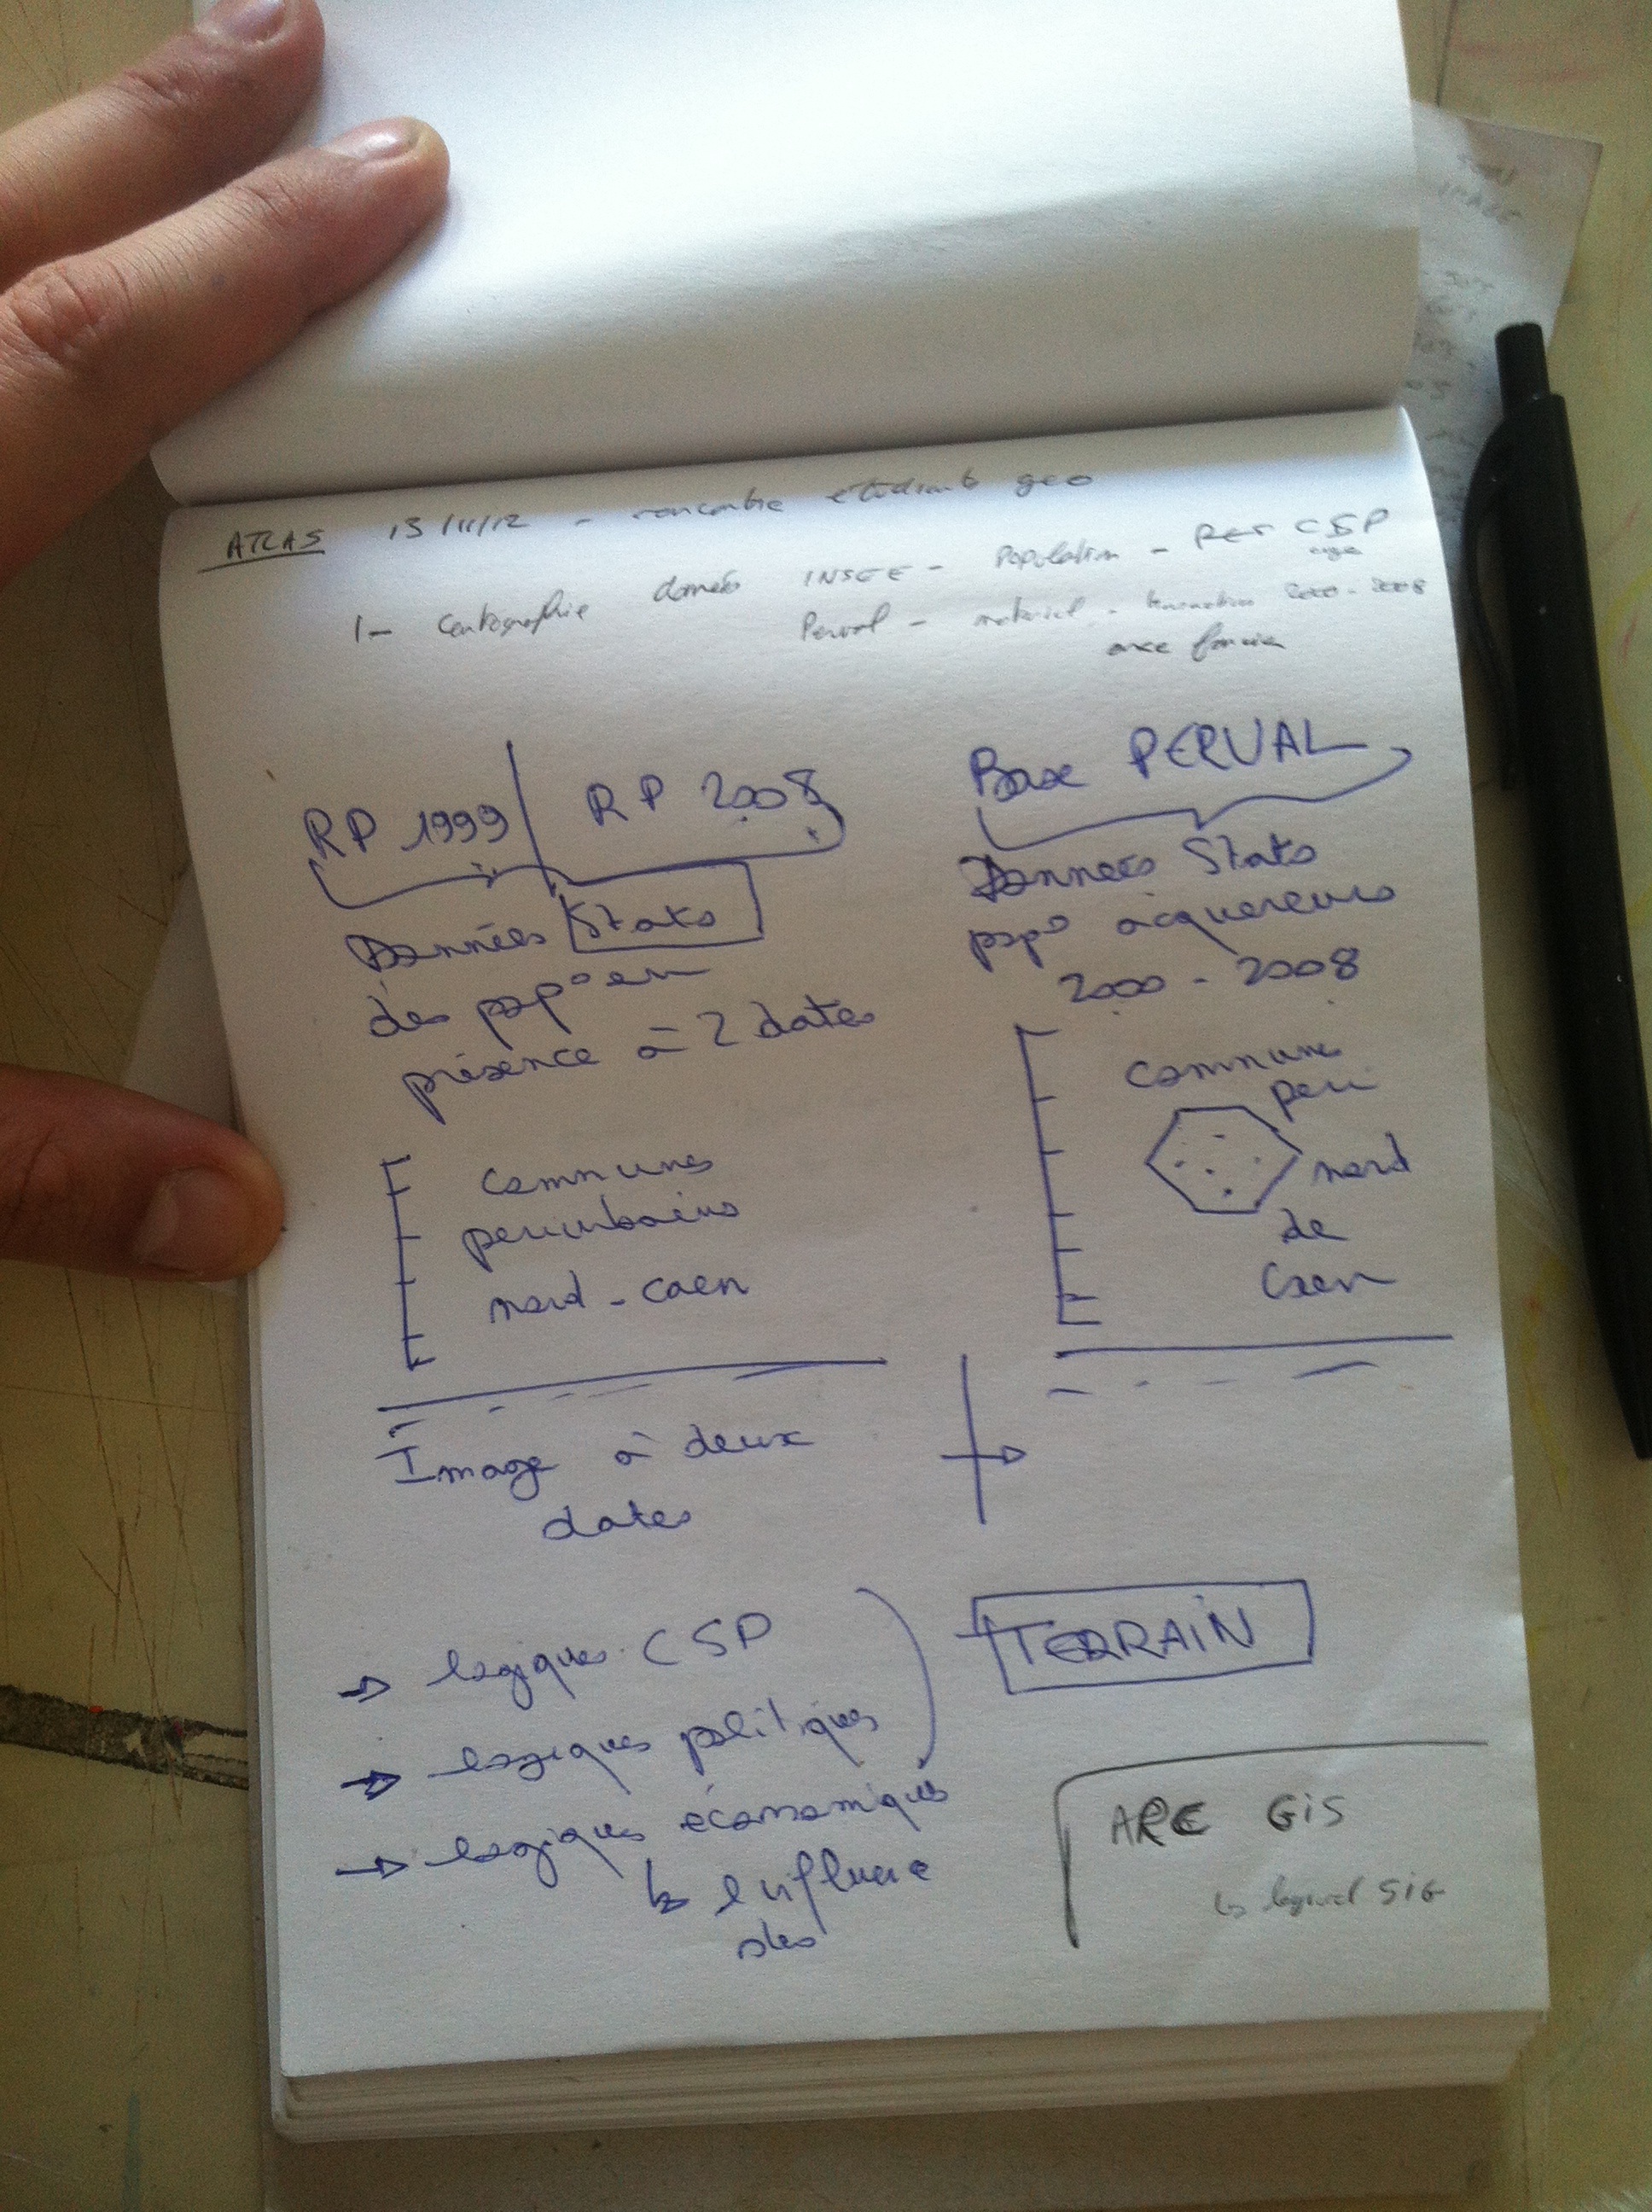 ATLAS 13/11/12 - rencontre étudiants geo
1- Cartographie données INSEE - Population - CSP
age
Perval - - transactions 2000-2008
RP 1999 | RP 2008
Données Stats
des pop° en
présence à 2 dates
communes
periurbains
nord-caen
Image à deux
dates
Base PERVAL
Données Stats
pop° acquereurs
2000-2008
communes
peri
nord
de
Caen
→ logiques CSP
→ logiques politiques
→ logiques économiques
↳ l'influence
des
TERRAIN
ARC GIS
↳ logiciel SIG